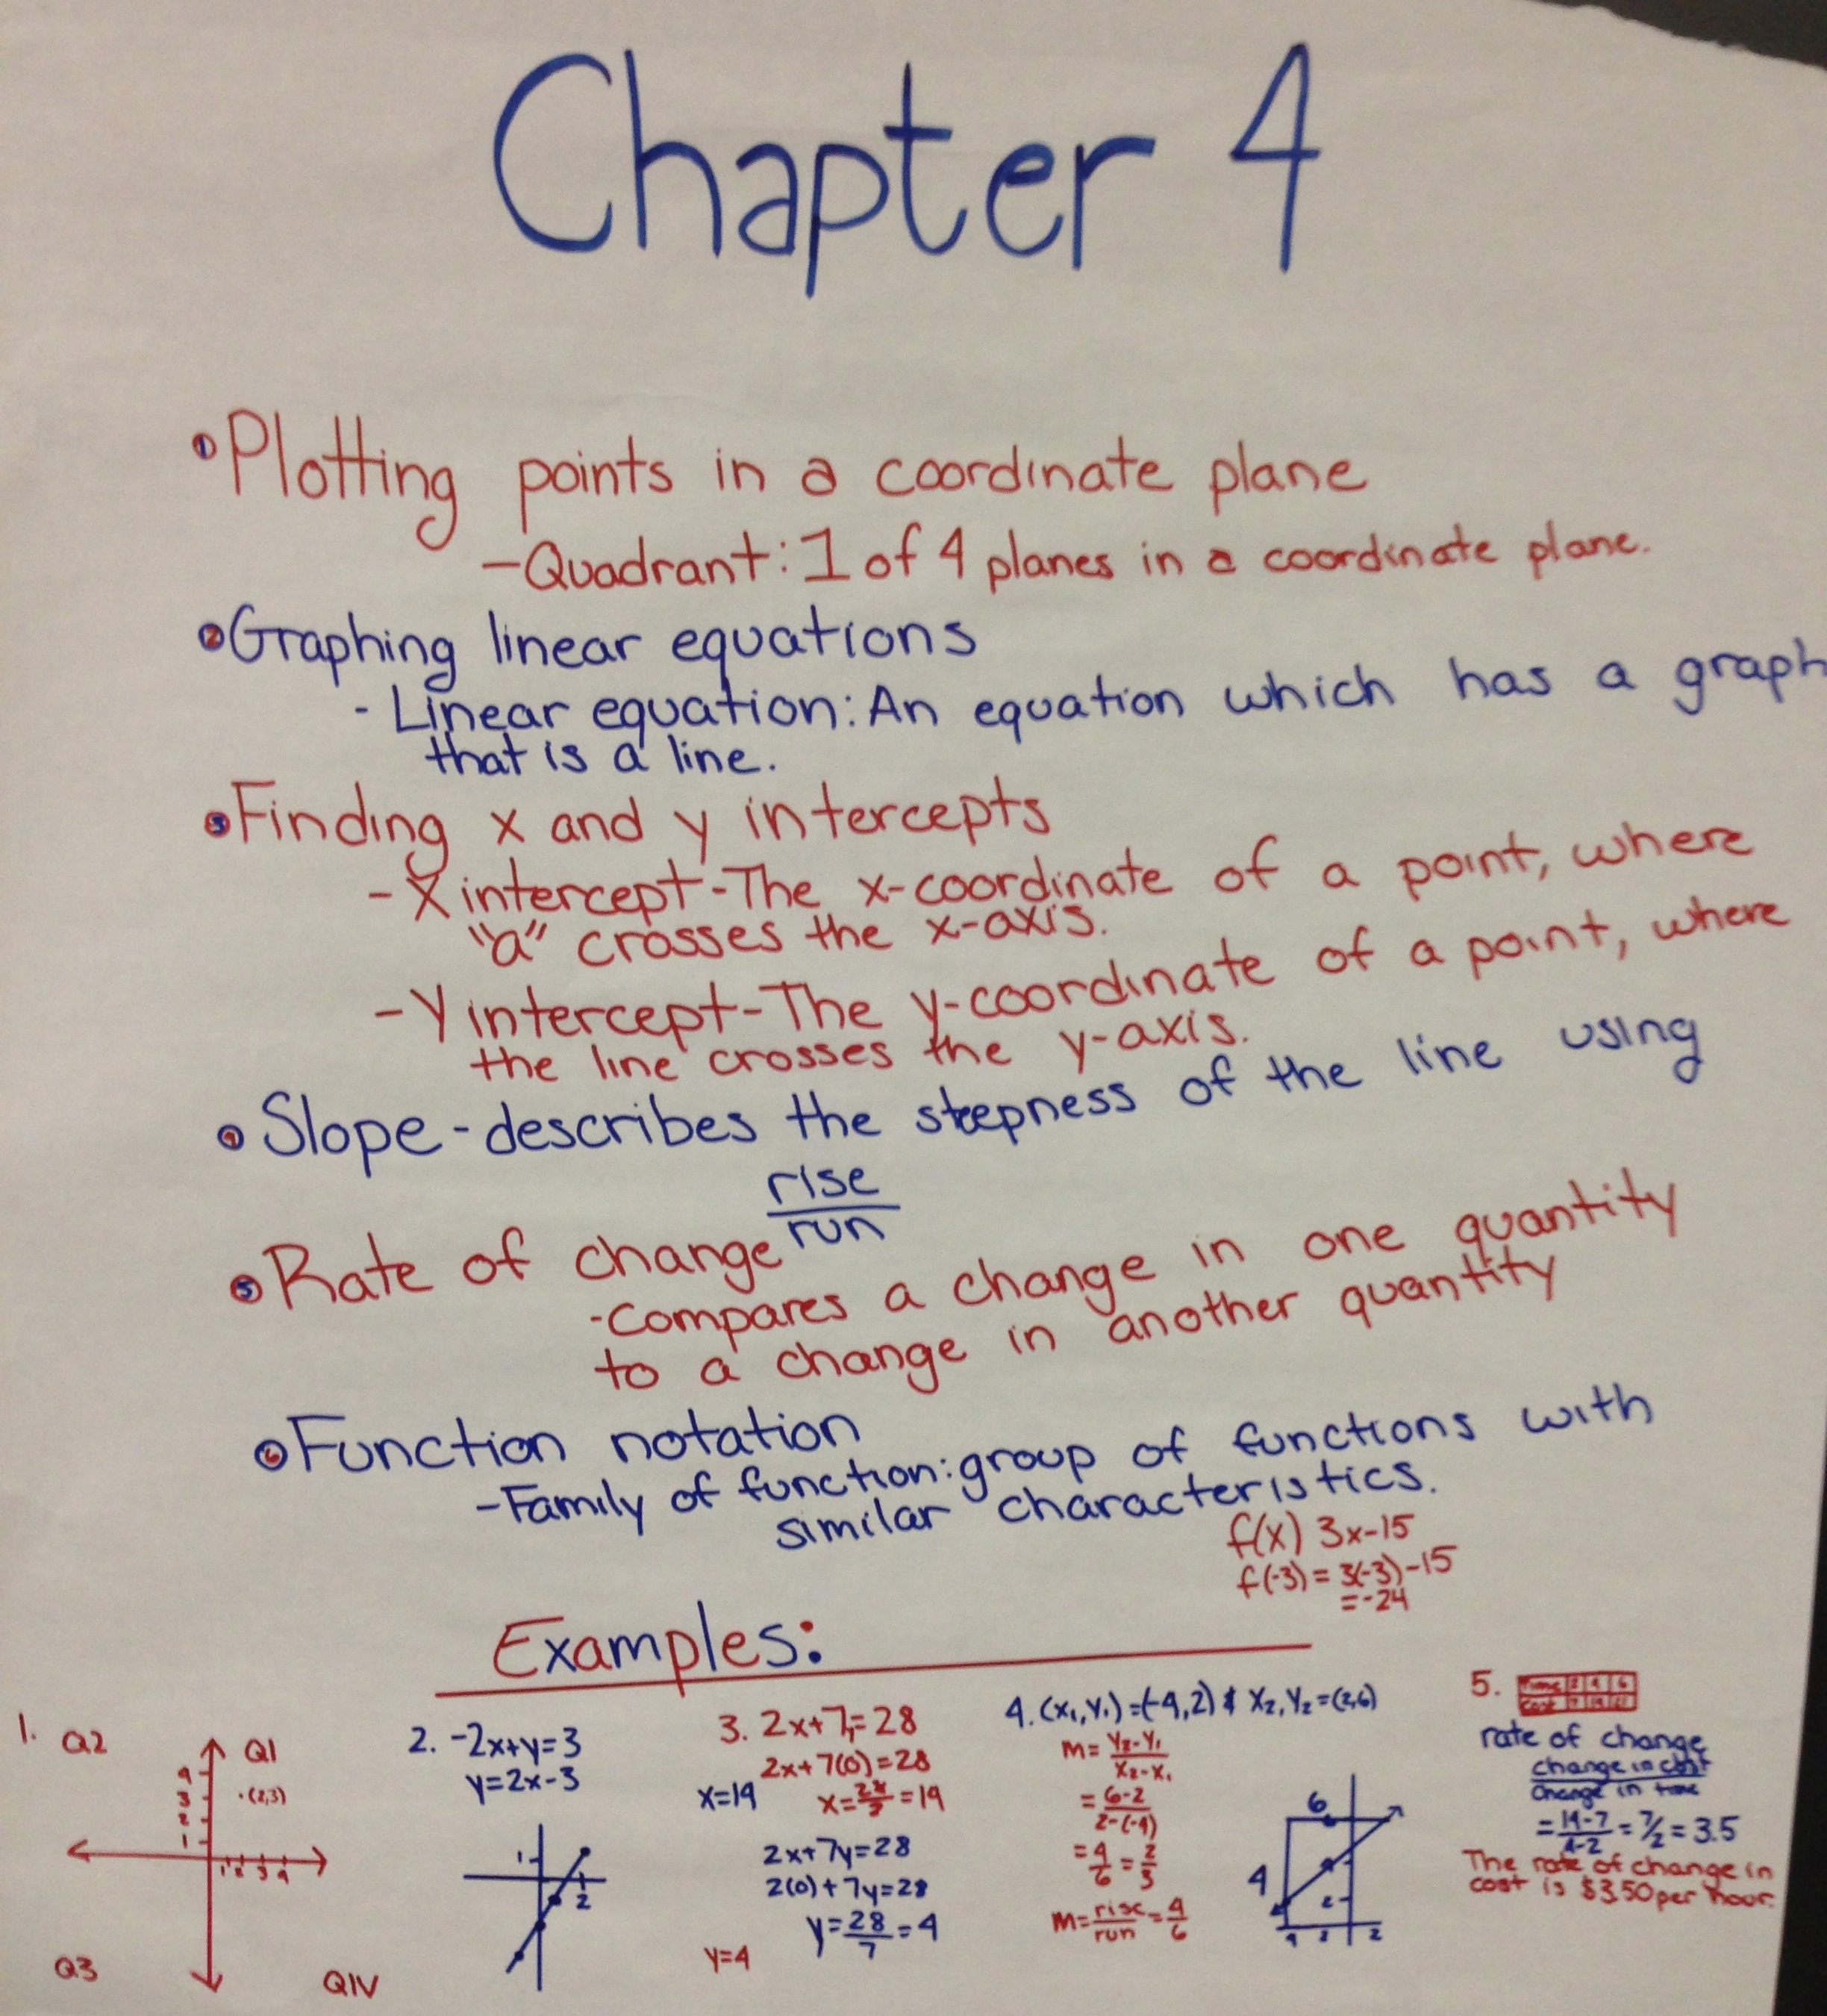 Chapter 4
1 Plotting points in a coordinate plane
-Quadrant: 1 of 4 planes in a coordinate plane.
2 Graphing linear equations
- Linear equation: An equation which has a graph
that is a line.
3 Finding x and y intercepts
- X intercept-The x-coordinate of a point, where
"a" crosses the x-axis.
- Y intercept-The y-coordinate of a point, where
the line crosses the y-axis.
4 Slope-describes the steepness of the line using
rise
run
5 Rate of change
-Compares a change in one quantity
to a change in another quantity
6 Function notation
-Family of function: group of functions with
similar characteristics.
f(x) 3x-15
f(-3) = 3(-3)-15
=-24
Examples:
1. Q2 Q1
4
3 (2,3)
2
1
1 2 3 4
Q3 QIV
2. -2x+y=3
y=2x-3
1
2
3. 2x+7y=28
2x+7(0)=28
x=14 x=28/2=14
2x+7y=28
2(0)+7y=28
y=28/7=4
y=4
4. (x₁,y₁)=(-4,2) & x₂,y₂=(2,6)
m=y₂-y₁/x₂-x₁
=6-2/2-(-4)
=4/6=2/3
m=rise/run=4/6
6
4
2
4 2 2
5. Time 2 4 6
Cost 7 14 21
rate of change
change in cost
change in time
=14-7/4-2=7/2=3.5
The rate of change in
cost is $3.50 per hour.